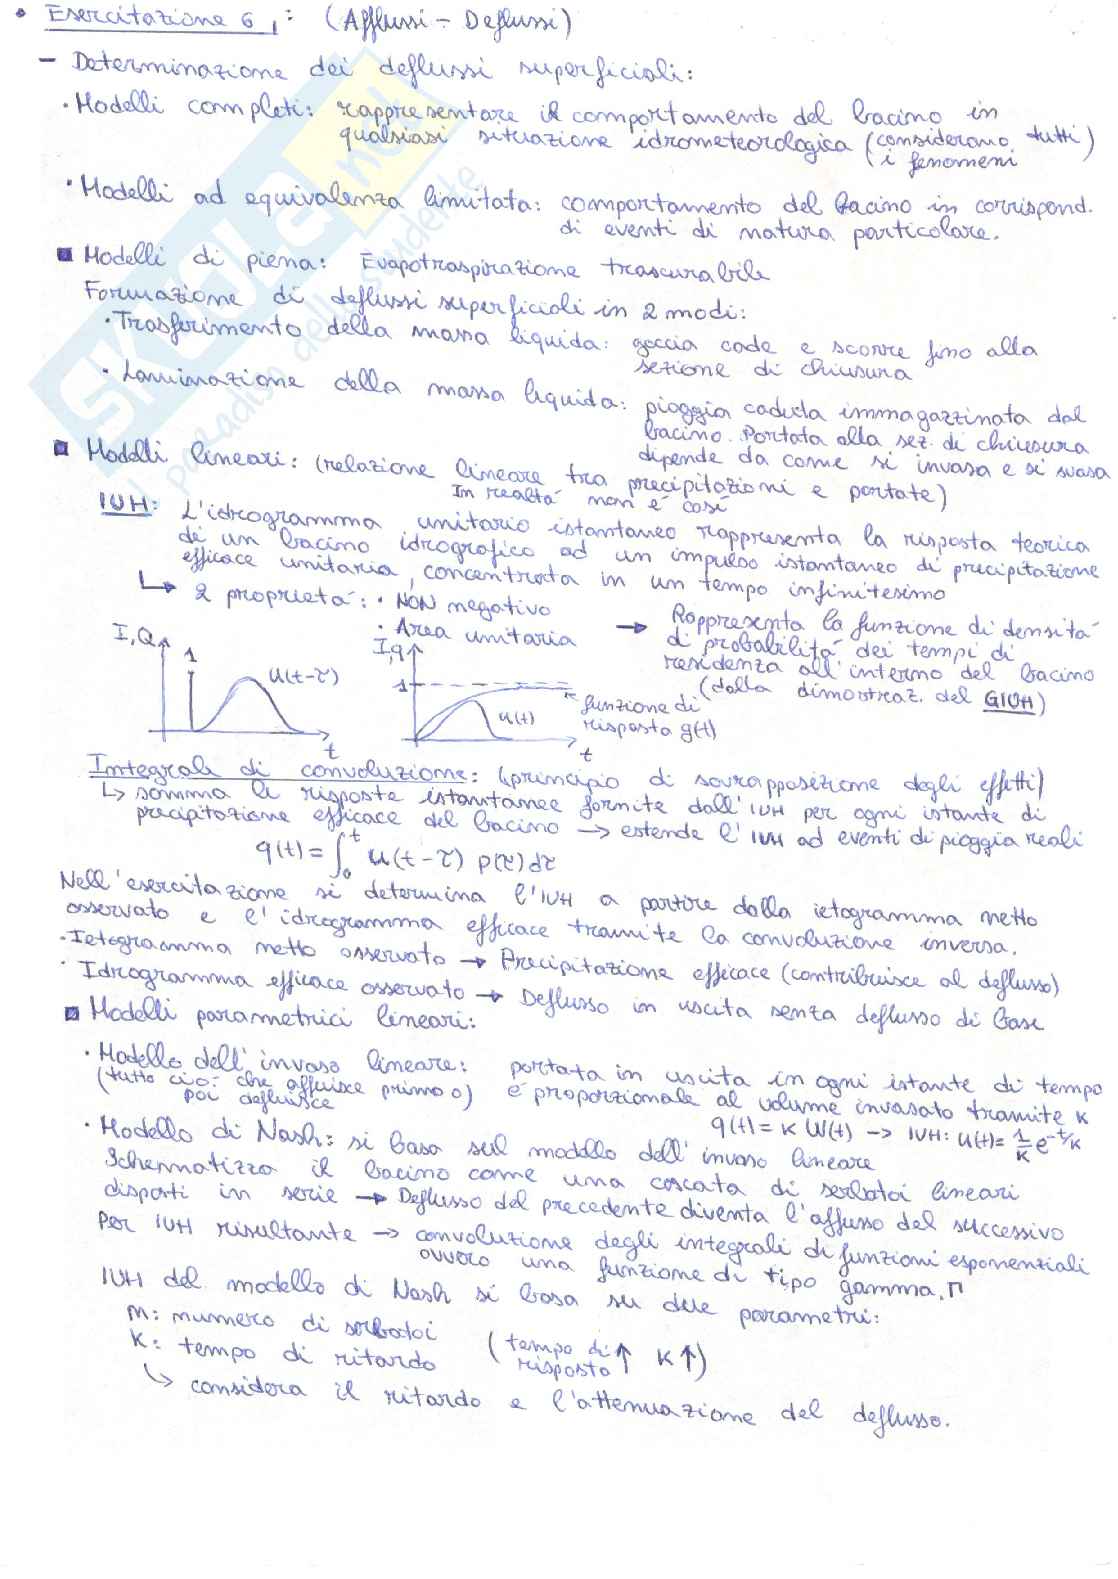 • Esercitazione 6: (Afflussi - Deflussi)
- Determinazione dei deflussi superficiali:
• Modelli completi: rappresentare il comportamento del bacino in
qualsiasi situazione idrometeorologica (considerano tutti)
(i fenomeni
• Modelli ad equivalenza limitata: comportamento del bacino in corrispond.
di eventi di natura particolare.
■ Modelli di piena: Evapotraspirazione trascurabile
Formazione di deflussi superficiali in 2 modi:
• Trasferimento della massa liquida: goccia cade e scorre fino alla
sezione di chiusura
• Laminazione della massa liquida: pioggia caduta immagazzinata dal
bacino. Portata alla sez. di chiusura
dipende da come si invasa e si svasa
■ Modelli lineari: (relazione lineare tra precipitazioni e portate)
In realtà non è così
IUH: L'idrogramma unitario istantaneo rappresenta la risposta teorica
di un bacino idrografico ad un impulso istantaneo di precipitazione
efficace unitaria, concentrata in un tempo infinitesimo
↳ 2 proprietà: • NON negativo
• Area unitaria
→ Rappresenta la funzione di densità
di probabilità dei tempi di
residenza all'interno del bacino
(dalla dimostraz. del GIUH)
I,Q
1
u(t-τ)
t
I,q
1
u(t)
funzione di
risposta g(t)
t
Integrale di convoluzione: (principio di sovrapposizione degli effetti)
↳ somma le risposte istantanee fornite dall'IUH per ogni istante di
precipitazione efficace del bacino → estende l'IUH ad eventi di pioggia reali
q(t) = ∫₀ᵗ u(t-τ) p(τ) dτ
Nell'esercitazione si determina l'IUH a partire dalla ietogramma netto
osservato e l'idrogramma efficace tramite la convoluzione inversa.
• Ietogramma netto osservato → Precipitazione efficace (contribuisce al deflusso)
• Idrogramma efficace osservato → Deflusso in uscita senza deflusso di base
■ Modelli parametrici lineari:
• Modello dell'invaso lineare: portata in uscita in ogni istante di tempo
(tutto ciò che affluisce prima o) è proporzionale al volume invasato tramite K
poi defluisce
q(t) = K W(t) → IUH: u(t) = 1/K e^(-t/K)
• Modello di Nash: si basa sul modello dell'invaso lineare
Schematizzo il bacino come una cascata di serbatoi lineari
disposti in serie → Deflusso del precedente diventa l'afflusso del successivo
Per IUH risultante → convoluzione degli integrali di funzioni esponenziali
ovvero una funzione di tipo gamma. Γ
IUH del modello di Nash si basa su due parametri:
m: numero di serbatoi
K: tempo di ritardo (tempo di risposta ↑ K ↑)
↳ considera il ritardo e l'attenuazione del deflusso.